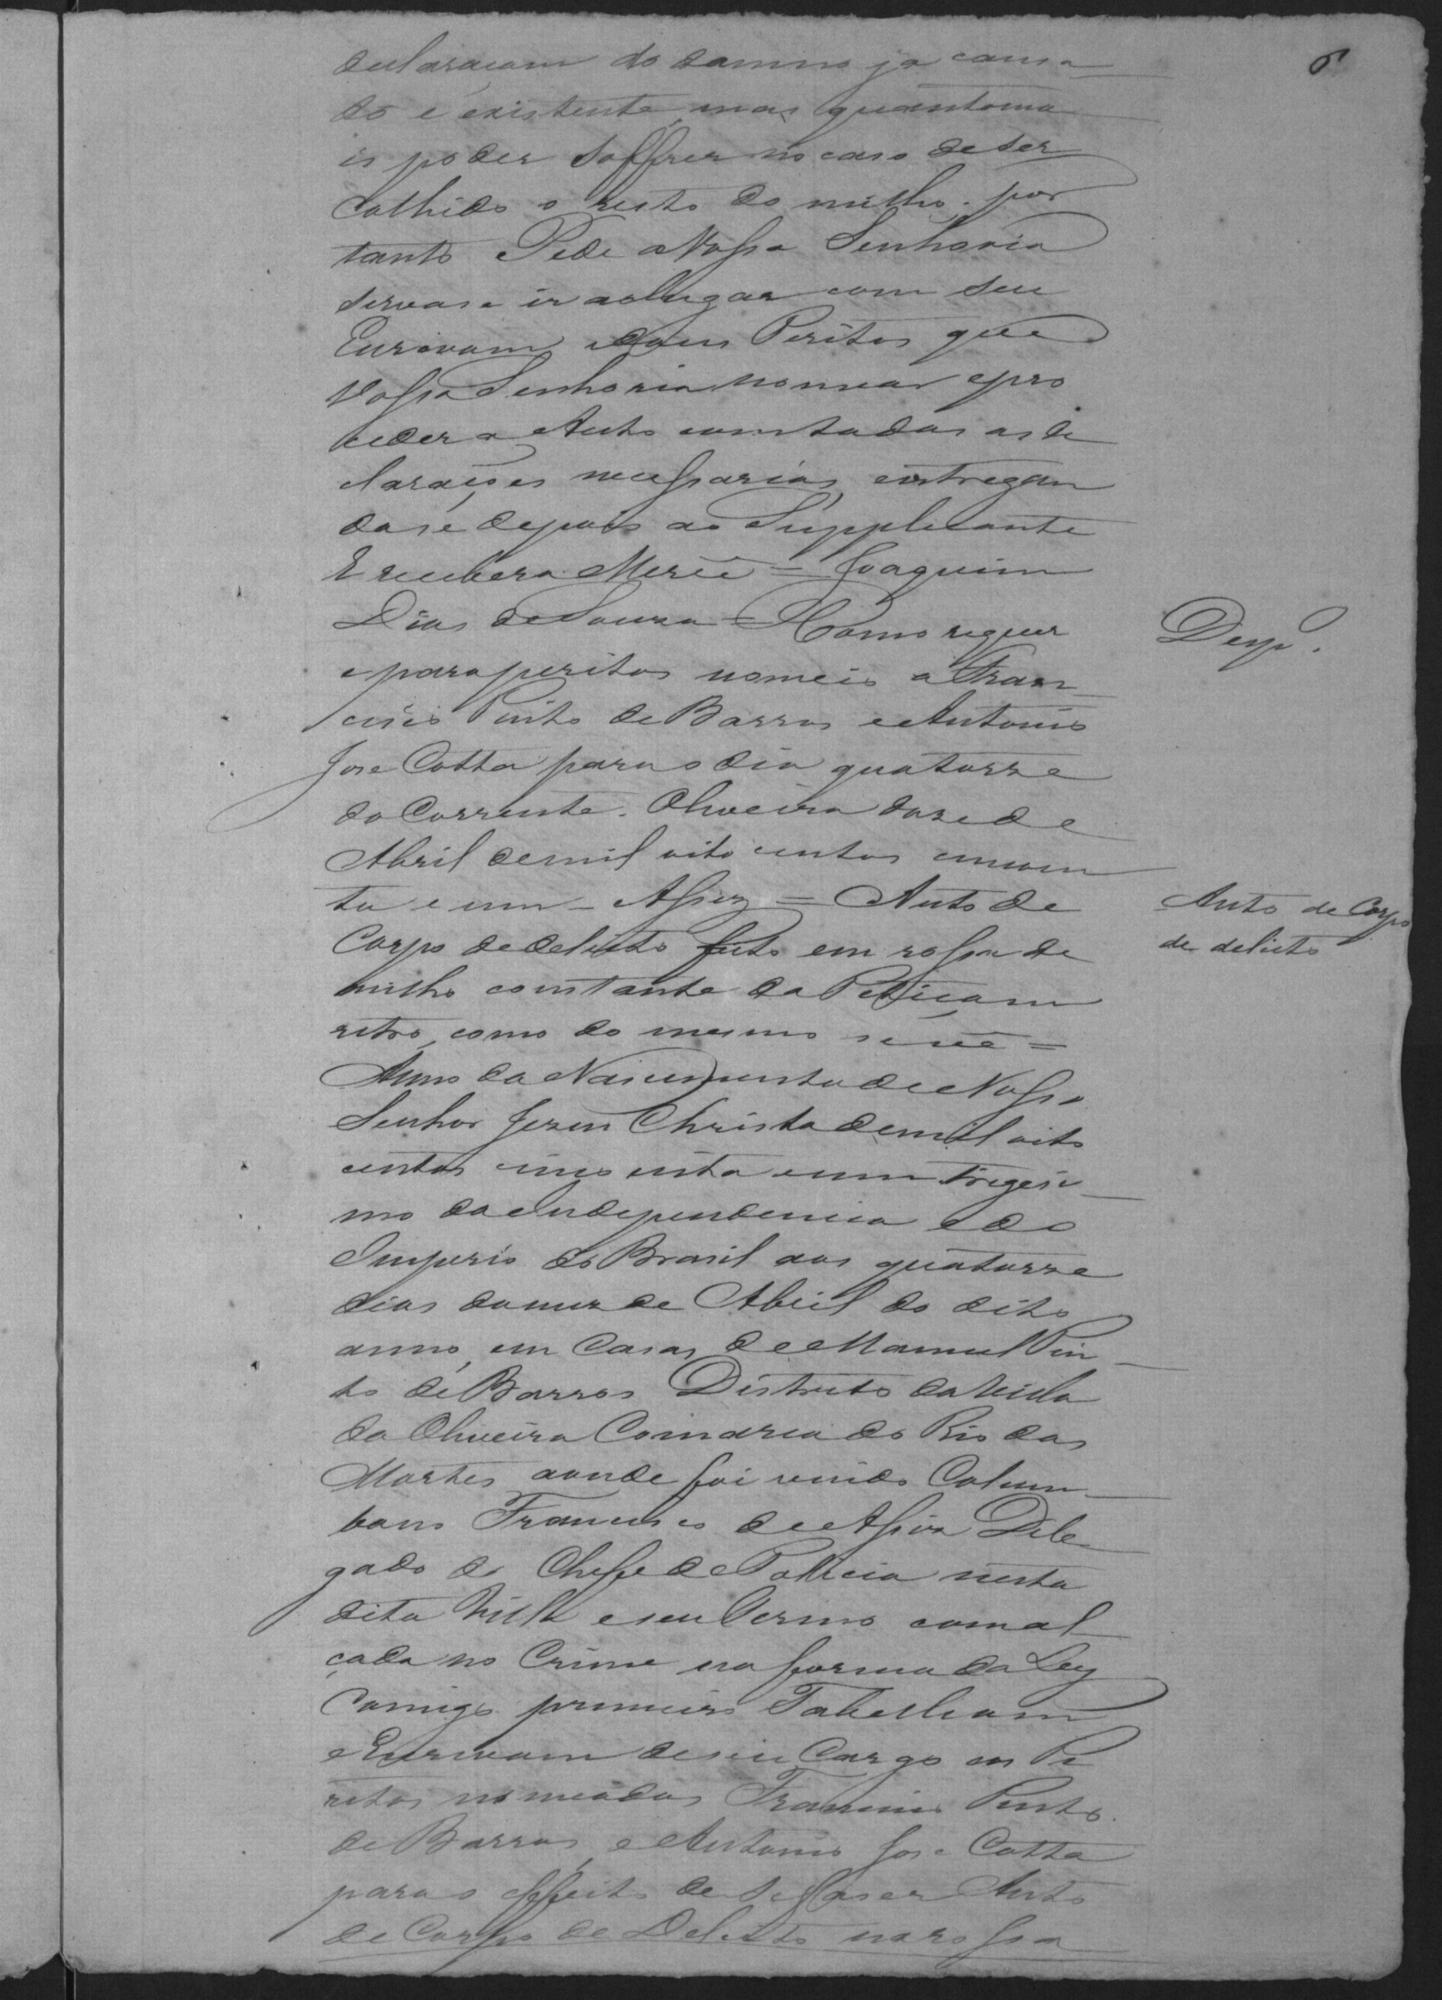 6
declaracam do damno ja causa
do e existente, mas quantoma
is poder soffrer no caso de ser
Colhido o resto do milho. por
tanto Pede a Vossa Senhoria
servase ir ao lugar com seu
Escrivam e dous Peritos que
Vossa Senhoria nomear epro
ceder a Auto com todas as de
claraçoes necessarias, entregan
dose depois ao Supplicante
E recebera Mercê = Joaquim
Dias de Souza = Como requer
e para peritos nomeio a Fran
cisco Pinto de Barros e Antonio
Jose Cotta para o dia quatorze
do Corrente. Oliveira doze de
Abril de mil oito centos cincoen
ta e um = Assiz = Auto de
Corpo de delicto feito em rossa de
milho constante da Peticam
retro, como do mesmo se vê =
Anno do Nascimento de Nosso
Senhor Jezus Christo de mil oito
centos cincoenta e um trigesi
mo da Independencia e do
Imperio do Brasil aos quatorze
dias do mez de Abril do dito
anno, em Casas de Manuel Pin
to de Barros Districto da Villa
da Oliveira Comarca do Rio das
Mortes aonde foi vindo Colum
bano Francisco de Assiz Dele
gado do Cheffe de Policia nesta
dita Villa e seu Termo com al
çada no Crime na forma da Ley
Comigo primeiro Tabelliam
e Escrivam de seu Cargo os Pe
ritos nomeados Francisco Pinto
de Barros, e Antonio Jose Cotta
para o effeito de se faser Auto
de Corpo de Delicto na rossa
Desp.º
Auto de Corpo
de delicto